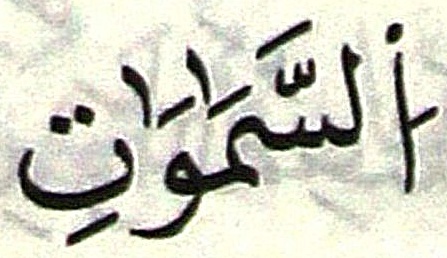 اُ۬لسَّمَٰوَٰتِ